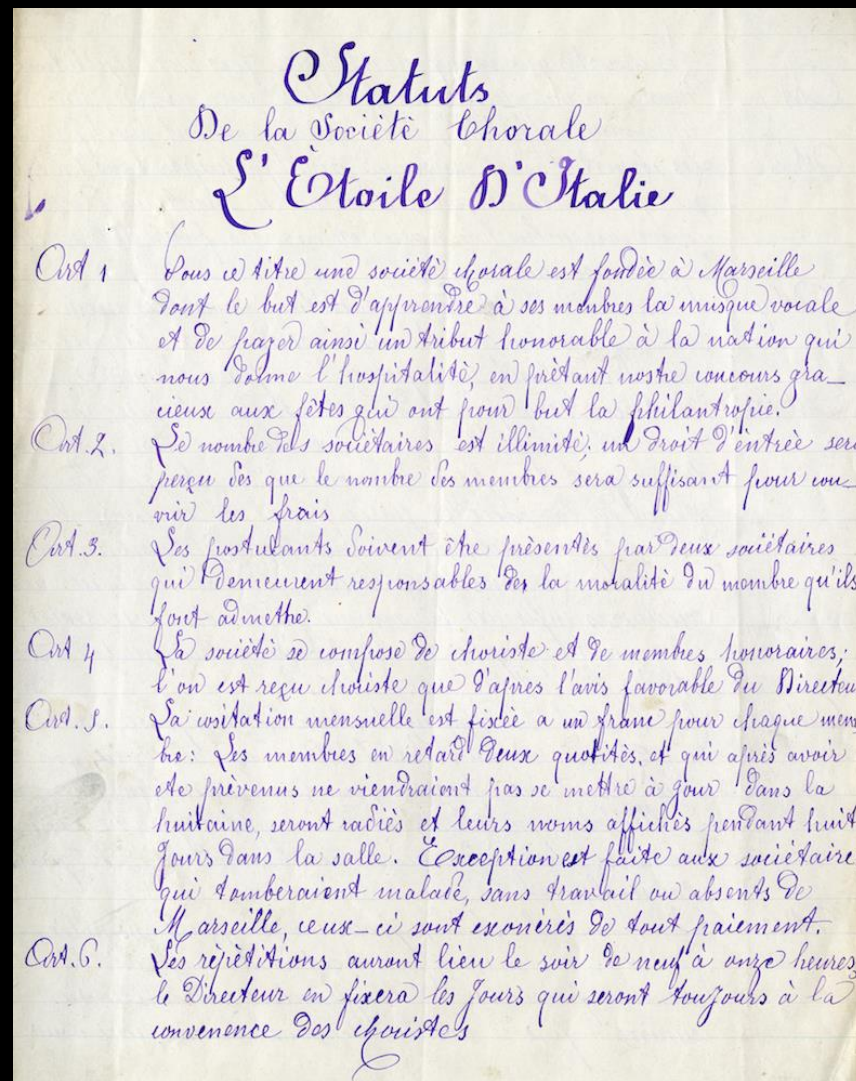 Statuts
De la Sociètè Chorale
L' Ètoile D'Italie
Art 1 Sous ce titre une sociètè chorale est fondèe à Marseille
dont le but est d'apprendre à ses membres la musque vocale
et de payer ainsi un tribut honorable à la nation qui
nous donne l'hospitalitè, en prètant nostre concours gra_
cieux aux fêtes qui ont pour but la philantropie.
Art. 2. Le nombre des sociètaires est illimitè, un droit d'entrèe sera
perçu des que le nombre des membres sera suffisant pour cou_
vrir les frais
Art. 3. Les postulants doivent être prèsentès par deux sociètaires
qui demeurent responsables de la moralitè du membre qu'ils
font admettre.
Art 4 La sociètè se compose de choriste et de membres honoraires;
l'on est reçu choriste que d'apres l'avis favorable du Directeur
Art. 5. La cositation mensuelle est fixèe a un franc pour chaque mem
bre: Les membres en retard deux quotitès, et qui après avoir
ete prèvenus ne viendraient pas se mettre à jour dans la
huitaine, seront radiès et leurs noms affichès pendant huit
Jours dans la salle. Exception est faite aux sociètaire
qui tomberaient malade, sans travail ou absents de
Marseille, ceux-ci sont exonèrès de tout paiement.
Art. 6. Les rèpètitions auront lieu le soir de neuf à onze heures,
le Directeur en fixera les Jours qui seront toujours à la
convenence des choristes